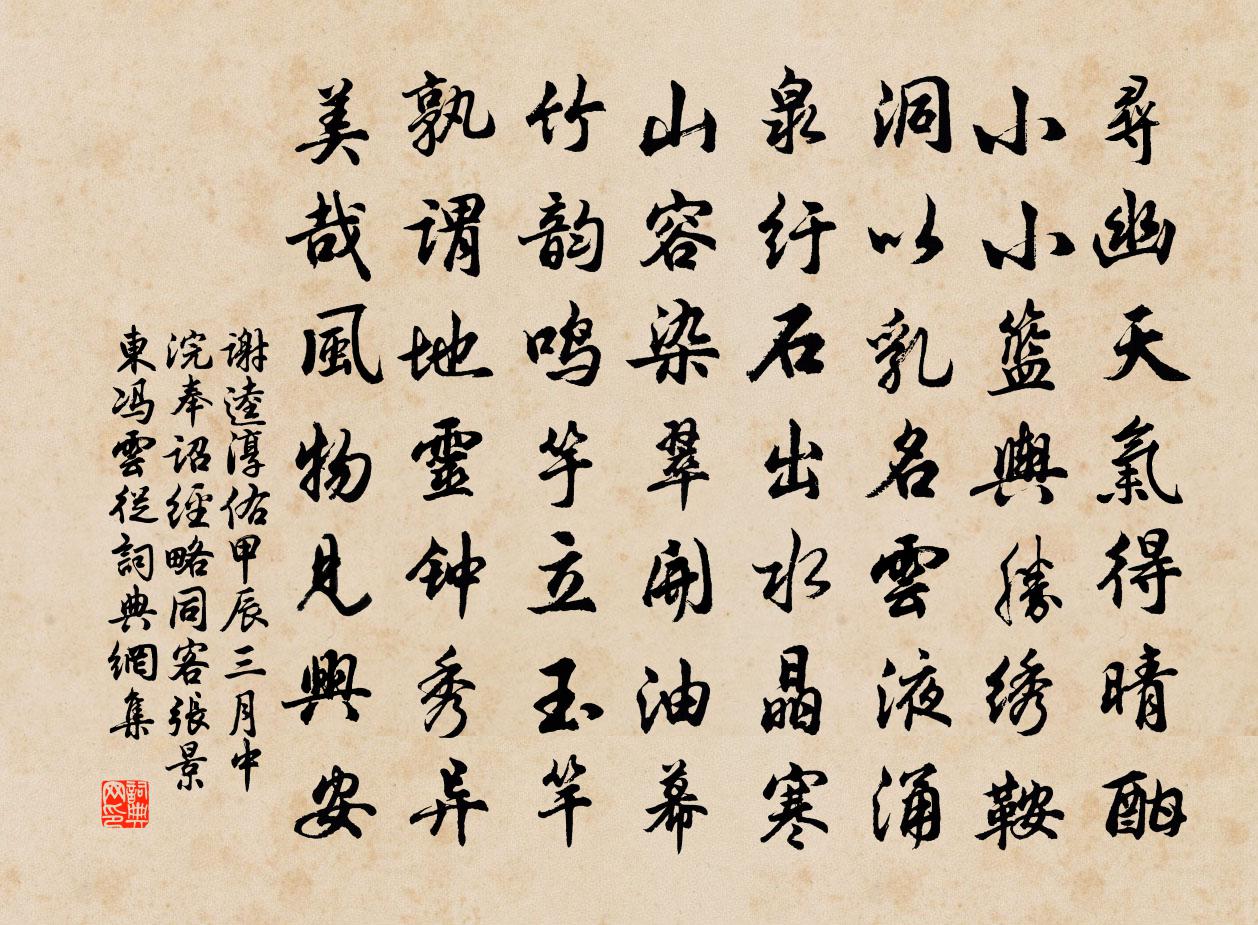 尋幽天氣得晴酣
小小籃輿勝绣鞍
洞以乳名雲液涌
泉紆石出水晶寒
山容染翠開油幕
竹韵鳴竽立玉竿
孰謂地靈钟秀异
美哉風物見興安
謝逵淳佑甲辰三月中
浣奉詔經略同客張景
東冯雲從詞典網集
詞典
网印